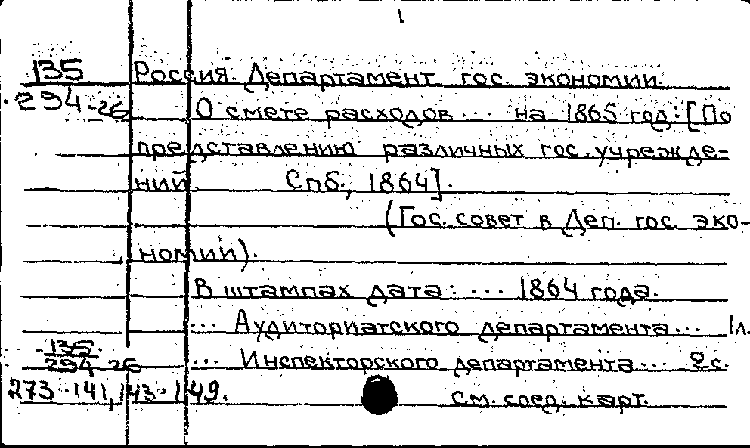 135 Россия. Департамент гос. экономии.
294-26 О смете расходов ... на 1865 год. [По
представлению различных гос. учрежде-
ний. Спб., 1864].
(Гос. совет в Деп. гос. эко-
номии).
В штампах дата: ... 1864 года.
... Аудиториатского департамента ... 1 л.
135
294-26 ... Инспекторского департамента ... 2 с.
273-141, 143-149. см. след. карт.